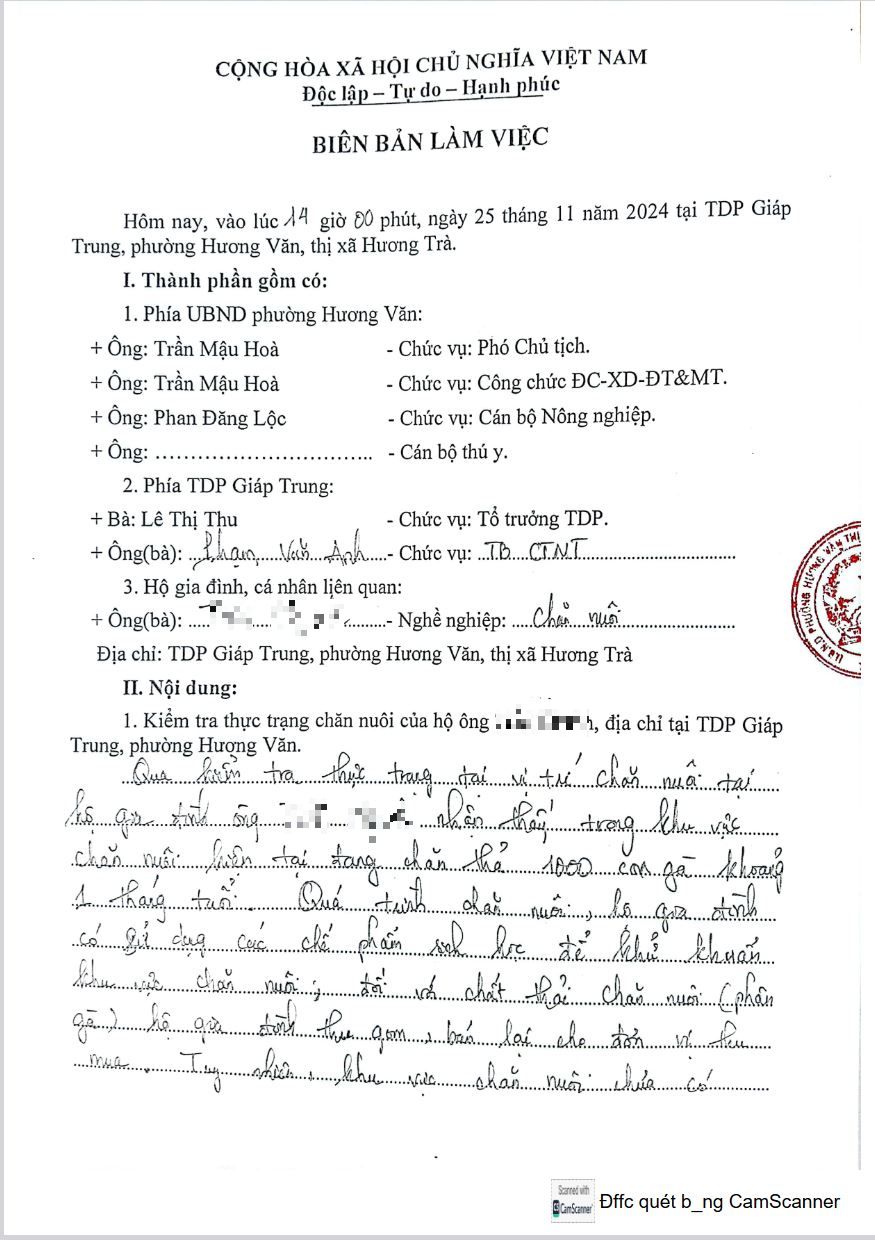 CỘNG HÒA XÃ HỘI CHỦ NGHĨA VIỆT NAM
Độc lập – Tự do – Hạnh phúc
BIÊN BẢN LÀM VIỆC
Hôm nay, vào lúc 14 giờ 00 phút, ngày 25 tháng 11 năm 2024 tại TDP Giáp
Trung, phường Hương Văn, thị xã Hương Trà.
I. Thành phần gồm có:
1. Phía UBND phường Hương Văn:
+ Ông: Trần Mậu Hoà - Chức vụ: Phó Chủ tịch.
+ Ông: Trần Mậu Hoà - Chức vụ: Công chức ĐC-XD-ĐT&MT.
+ Ông: Phan Đăng Lộc - Chức vụ: Cán bộ Nông nghiệp.
+ Ông: ................................. - Cán bộ thú y.
2. Phía TDP Giáp Trung:
+ Bà: Lê Thị Thu - Chức vụ: Tổ trưởng TDP.
+ Ông(bà): Phạm Văn Anh - Chức vụ: TB CTNT
3. Hộ gia đình, cá nhân liên quan:
+ Ông(bà): - Nghề nghiệp: chăn nuôi
Địa chỉ: TDP Giáp Trung, phường Hương Văn, thị xã Hương Trà
II. Nội dung:
1. Kiểm tra thực trạng chăn nuôi của hộ ông , địa chỉ tại TDP Giáp
Trung, phường Hương Văn.
Qua kiểm tra thực trạng tại vị trí chăn nuôi tại
hộ gia đình ông nhận thấy trong khu vực
chăn nuôi hiện tại đang chăn thả 1000 con gà khoảng
1 tháng tuổi. Quá trình chăn nuôi, hộ gia đình
có sử dụng các chế phẩm sinh học để khử khuẩn
khu vực chăn nuôi; đối với chất thải chăn nuôi (phân
gà) hộ gia đình thu gom, bán lại cho đơn vị thu
mua. Tuy nhiên, khu vực chăn nuôi chưa có
U.B.N.D PHƯỜNG HƯƠNG VĂN THỊ
Scanned with
CS CamScanner
Đffc quét b_ng CamScanner